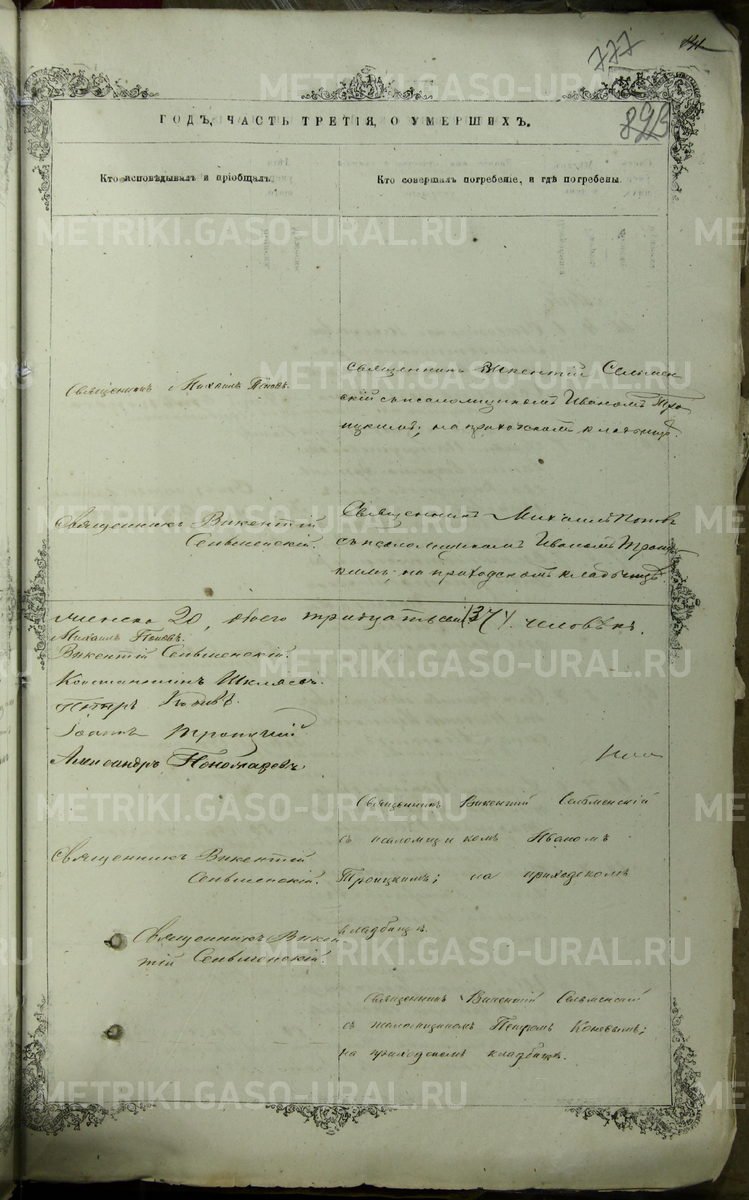 777
893
ГОДЪ, ЧАСТЬ ТРЕТІЯ, О УМЕРШИХЪ.
Кто исповѣдывалъ и пріобщалъ.
Кто совершалъ погребеніе, и гдѣ погребены.
Священникъ Михаилъ Поповъ.
Священникъ Викентій Сельмен
скій съ псаломщикомъ Иваномъ Тро
ицкимъ; на приходскомъ кладбищѣ.
Священникъ Викентій
Сельменскій.
Священникъ Михаилъ Поповъ
съ псаломщикомъ Иваномъ Троиц
кимъ; на приходскомъ кладбищѣ.
женска 20, обоего тридцать семь (37) человѣкъ.
Михаилъ Поповъ.
Викентій Сельменскій.
Константинъ Шкляевъ.
Петръ
Іоаннъ Троицкій
Александръ Пономаревъ
Священникъ Викентій
Сельменскій.
Священникъ Викентій Сельменскій
съ псаломщикомъ Иваномъ
Троицкимъ; на приходскомъ
кладбищѣ.
Священникъ Викен
тій Сельменскій.
Священникъ Викентій Сельменскій
съ псаломщикомъ Петромъ Коновымъ;
на приходскомъ кладбищѣ.
METRIKI.GASO-URAL.RU